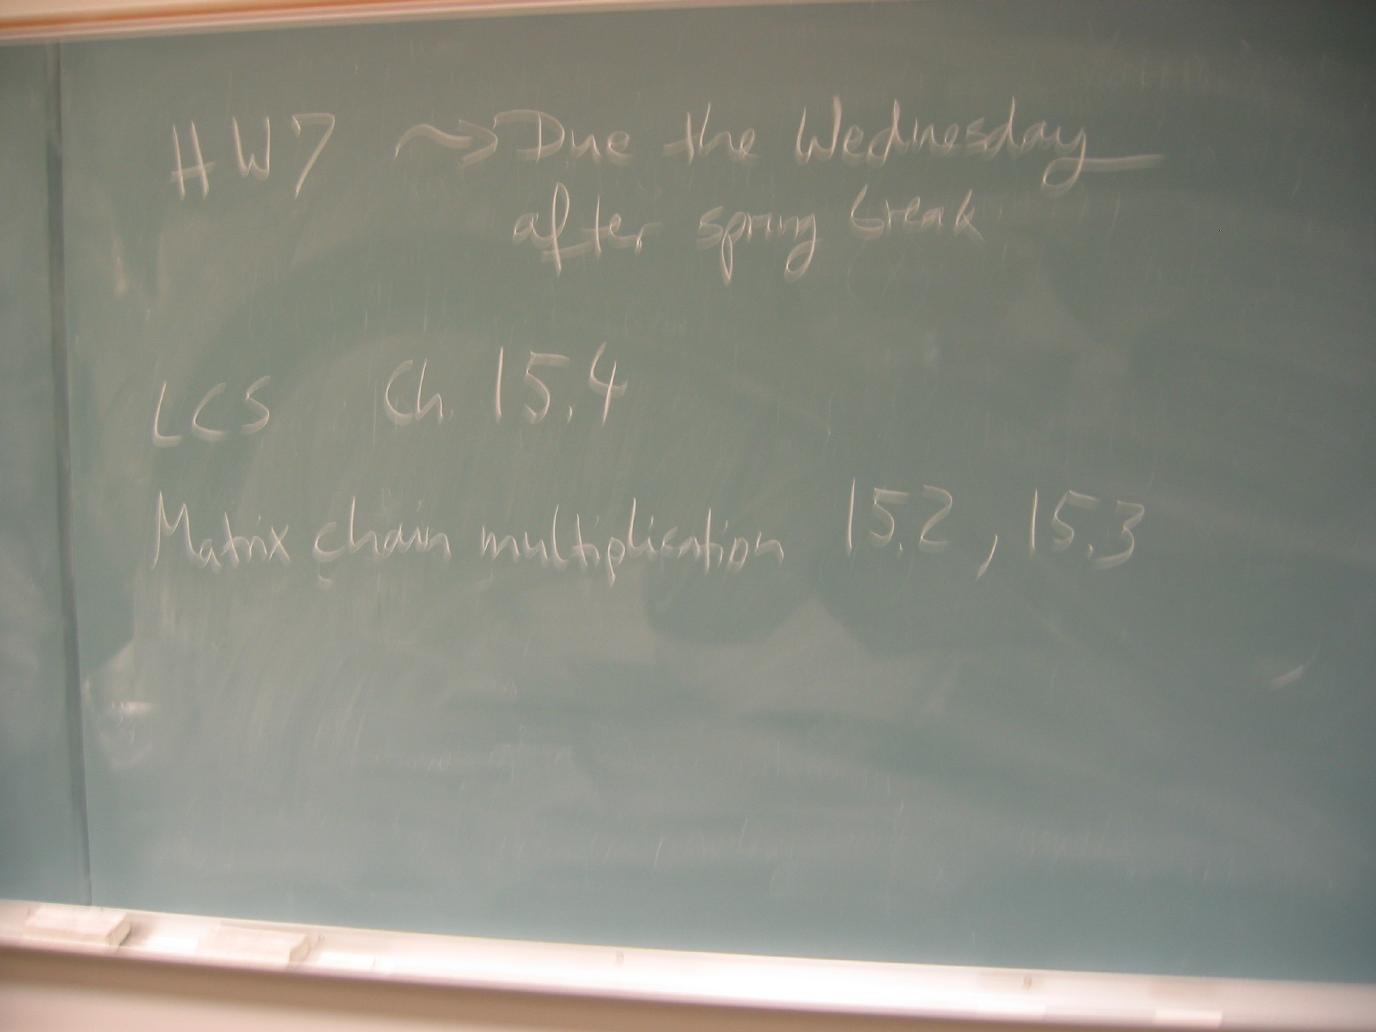 HW7 ~> Due the Wednesday
after spring break
LCS Ch. 15.4
Matrix chain multiplication 15.2, 15.3